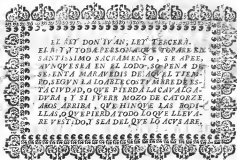 EL REY DON IVAN, LEY TERCERA.
EL REY, Y TODA PERSONA QUE TOPARE EL
SANTISSIMO SACRAMENTO, SE APEE,
AUNQVE SEA EN EL LODO, SOPENA DE
SESENTA MARAVEDIS DE AQVEL TIEM-
PO, SEGVN LA LOABLE COSTVMBRE DES-
TA CIVDAD, O QUE PIERDA LA CAVALGA-
DVRA; Y SI FVERE MOZO DE CATORZE
AÑOS ARRIBA, QUE HINQUE LAS RODI-
LLAS, O QUE PIERDA TODO LO QUE LLEVA-
RE VESTIDO, Y SEA DEL QUE LO ACVSARE.